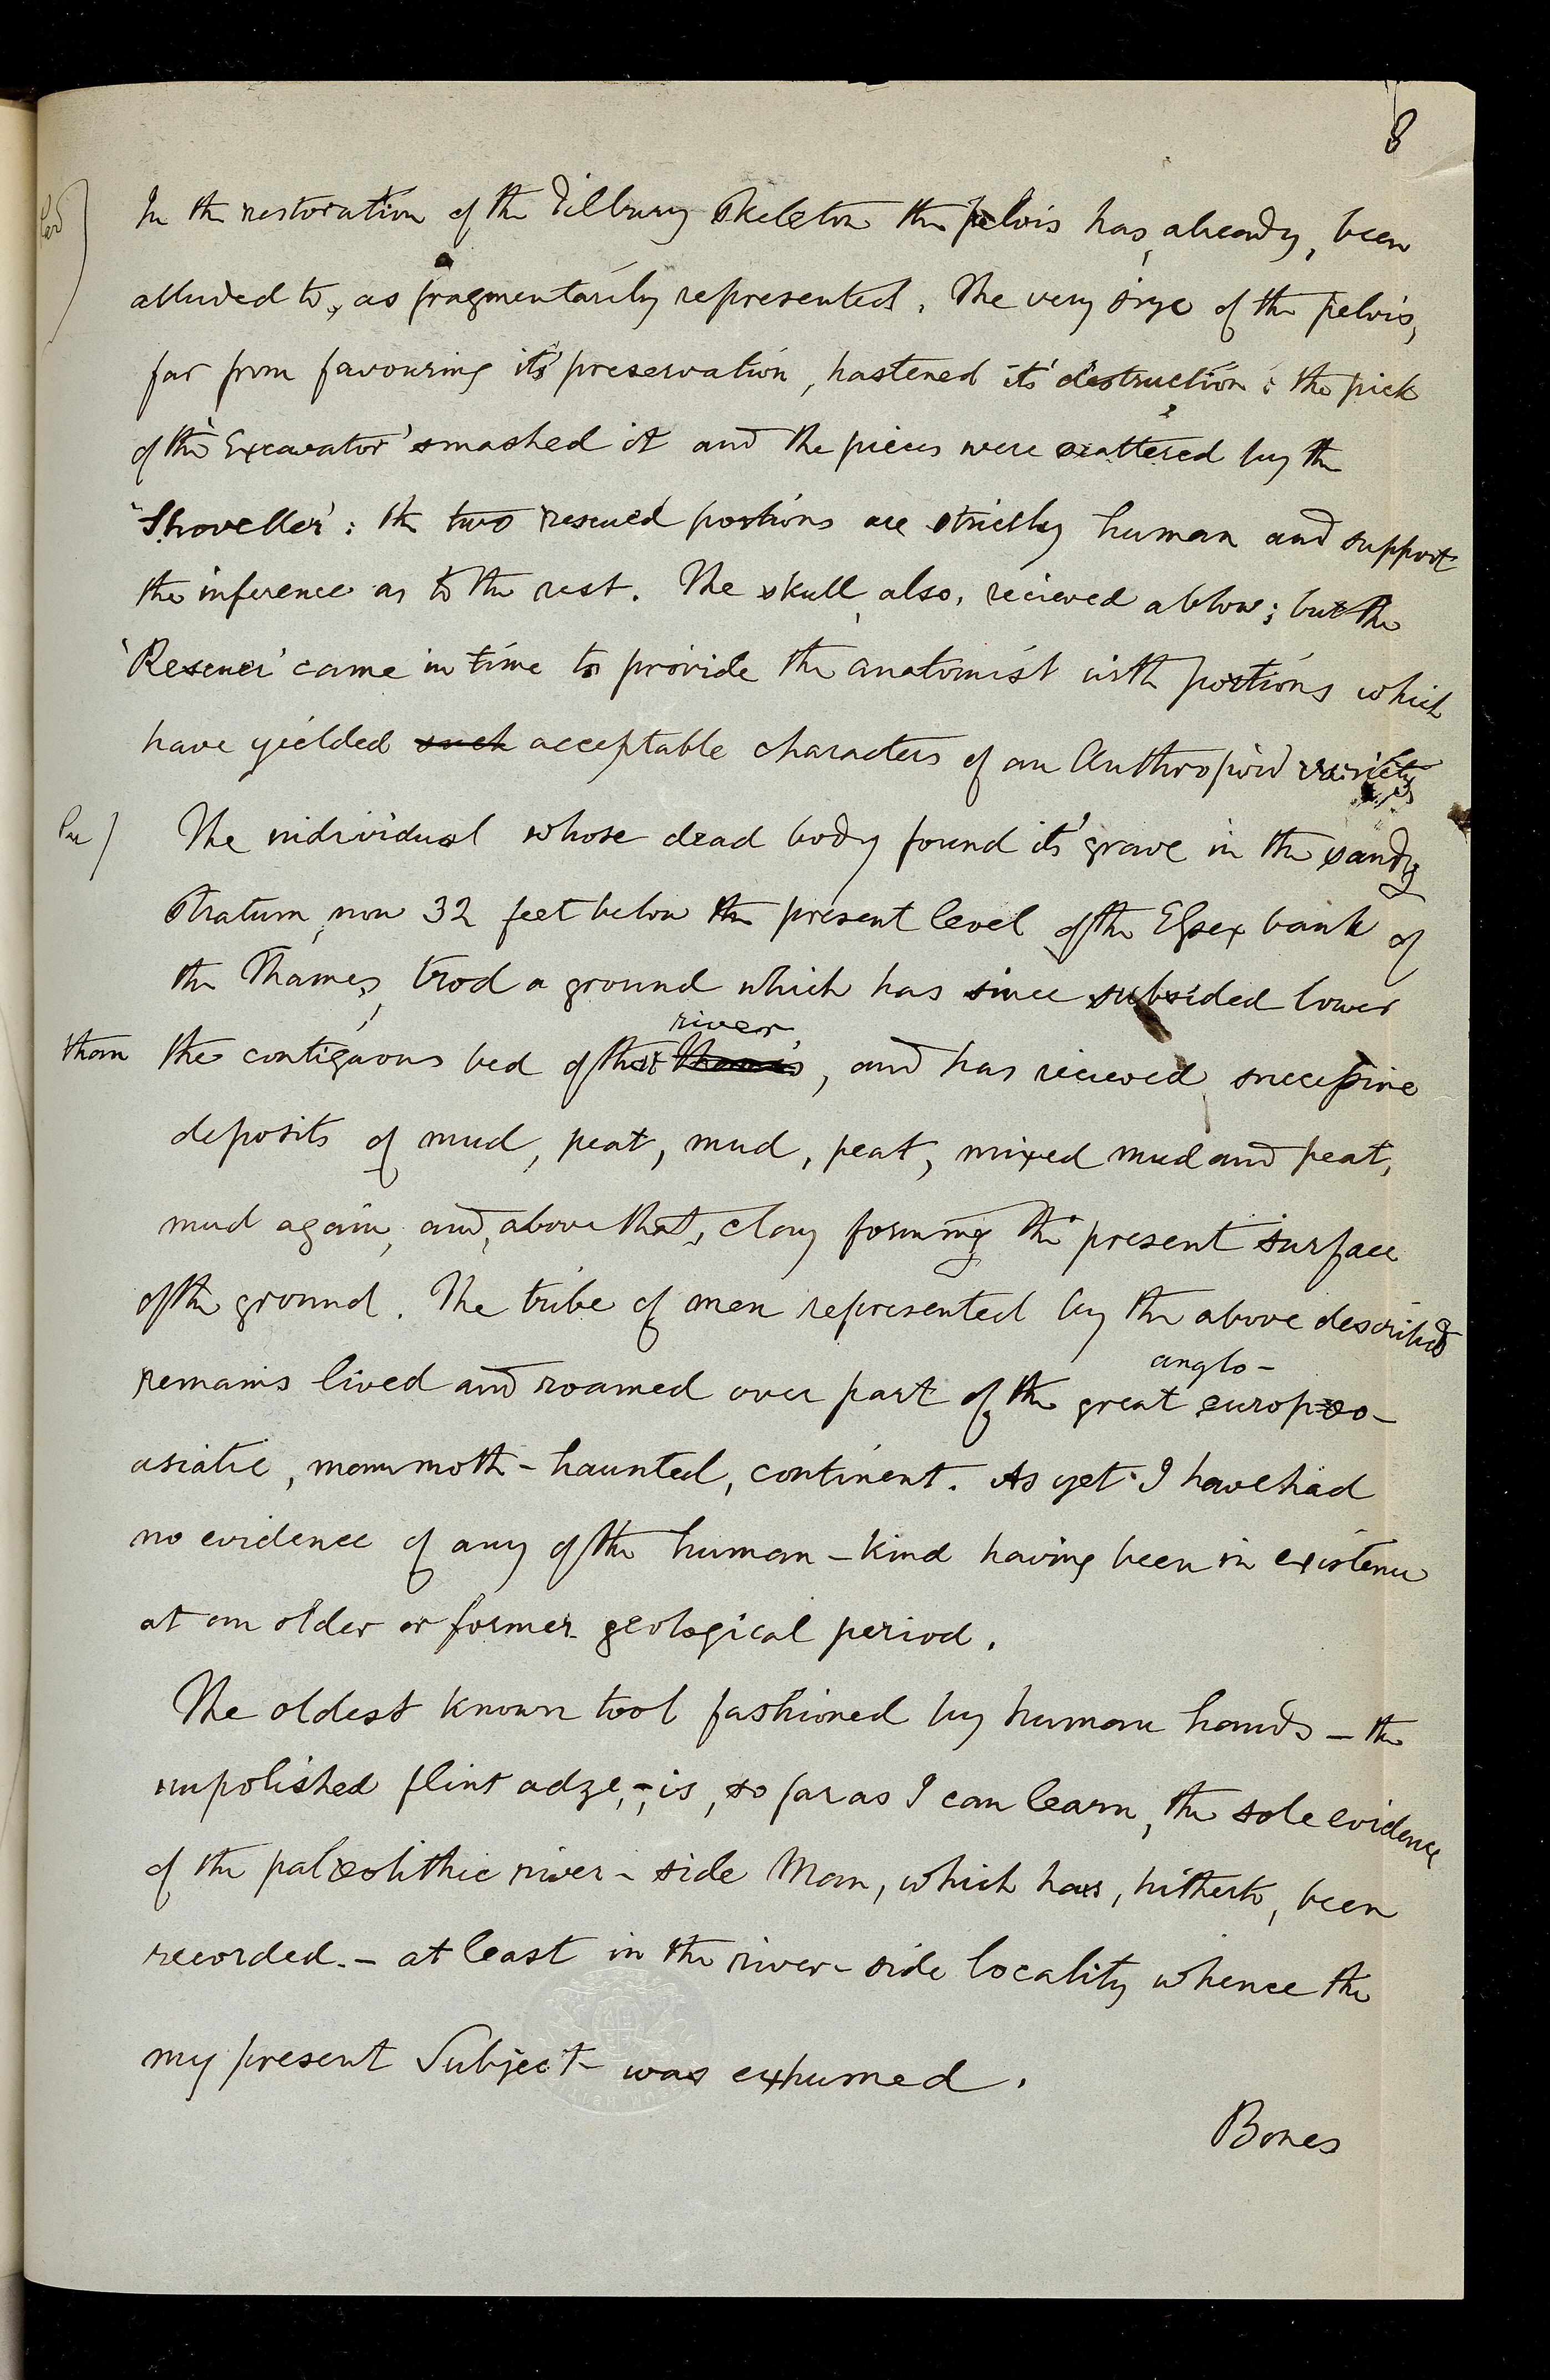 8
In the restoration of the Tilbury Skeleton the pelvis has, already, been
alluded to, as fragmentarily represented. The very size of the pelvis,
far from favouring its' preservation, hastened its' destruction: the pick
of the 'Excavator' smashed it and the pieces were scattered by the
'Shoveller': the two rescued portions are strictly human and support
the inference as to the rest. The skull, also, recieved a blow; but the
'Rescuer' came in time to provide the anatomist with portions which
have yielded such acceptable characters of an Anthropoid variety
The individual whose dead body found its' grave in the sandy
Stratum, now 32 feet below the present level of the Essex bank of
the Thames, trod a ground which has since subsided lower
than the contiguous bed of that river Thames, and has recieved successive
deposits of mud, peat, mud, peat, mixed mud and peat,
mud again, and, above that, clay forming the present surface
of the ground. The tribe of men represented by the above described
remains lived and roamed over part of the great anglo-europæo-
asiatic, mammoth-haunted, continent. As yet I have had
no evidence of any of the human-kind having been in existence
at an older or former geological period.
The oldest known tool fashioned by human hands — the
unpolished flint adze, - is, so far as I can learn, the sole evidence
of the palæolithic river-side Man, which has, hitherto, been
recorded. — at least in the river-side locality whence the
my present Subject was exhumed.
Bones